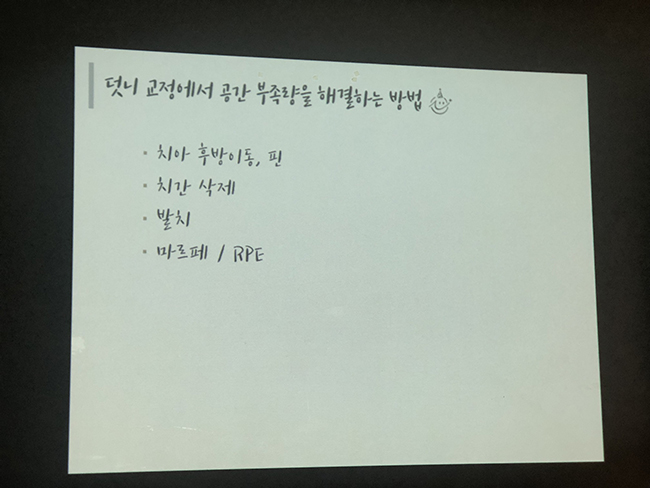 덧니 교정에서 공간 부족량을 해결하는 방법
치아 후방이동, 핀
치간 삭제
발치
마르페 / RPE